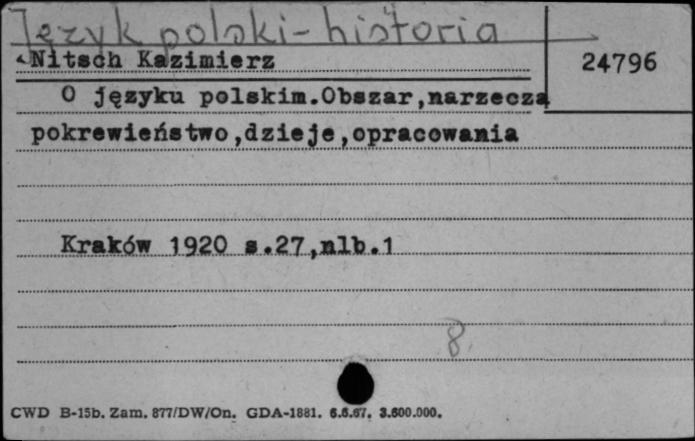 Język polski - historia
Nitsch Kazimierz
24796
O języku polskim.Obszar,narzecza
pokrewieństwo,dzieje,opracowania
Kraków 1920 s.27,nlb.1
8.
CWD B-15b. Zam. 877/DW/On. GDA-1881. 6.6.67. 3.600.000.